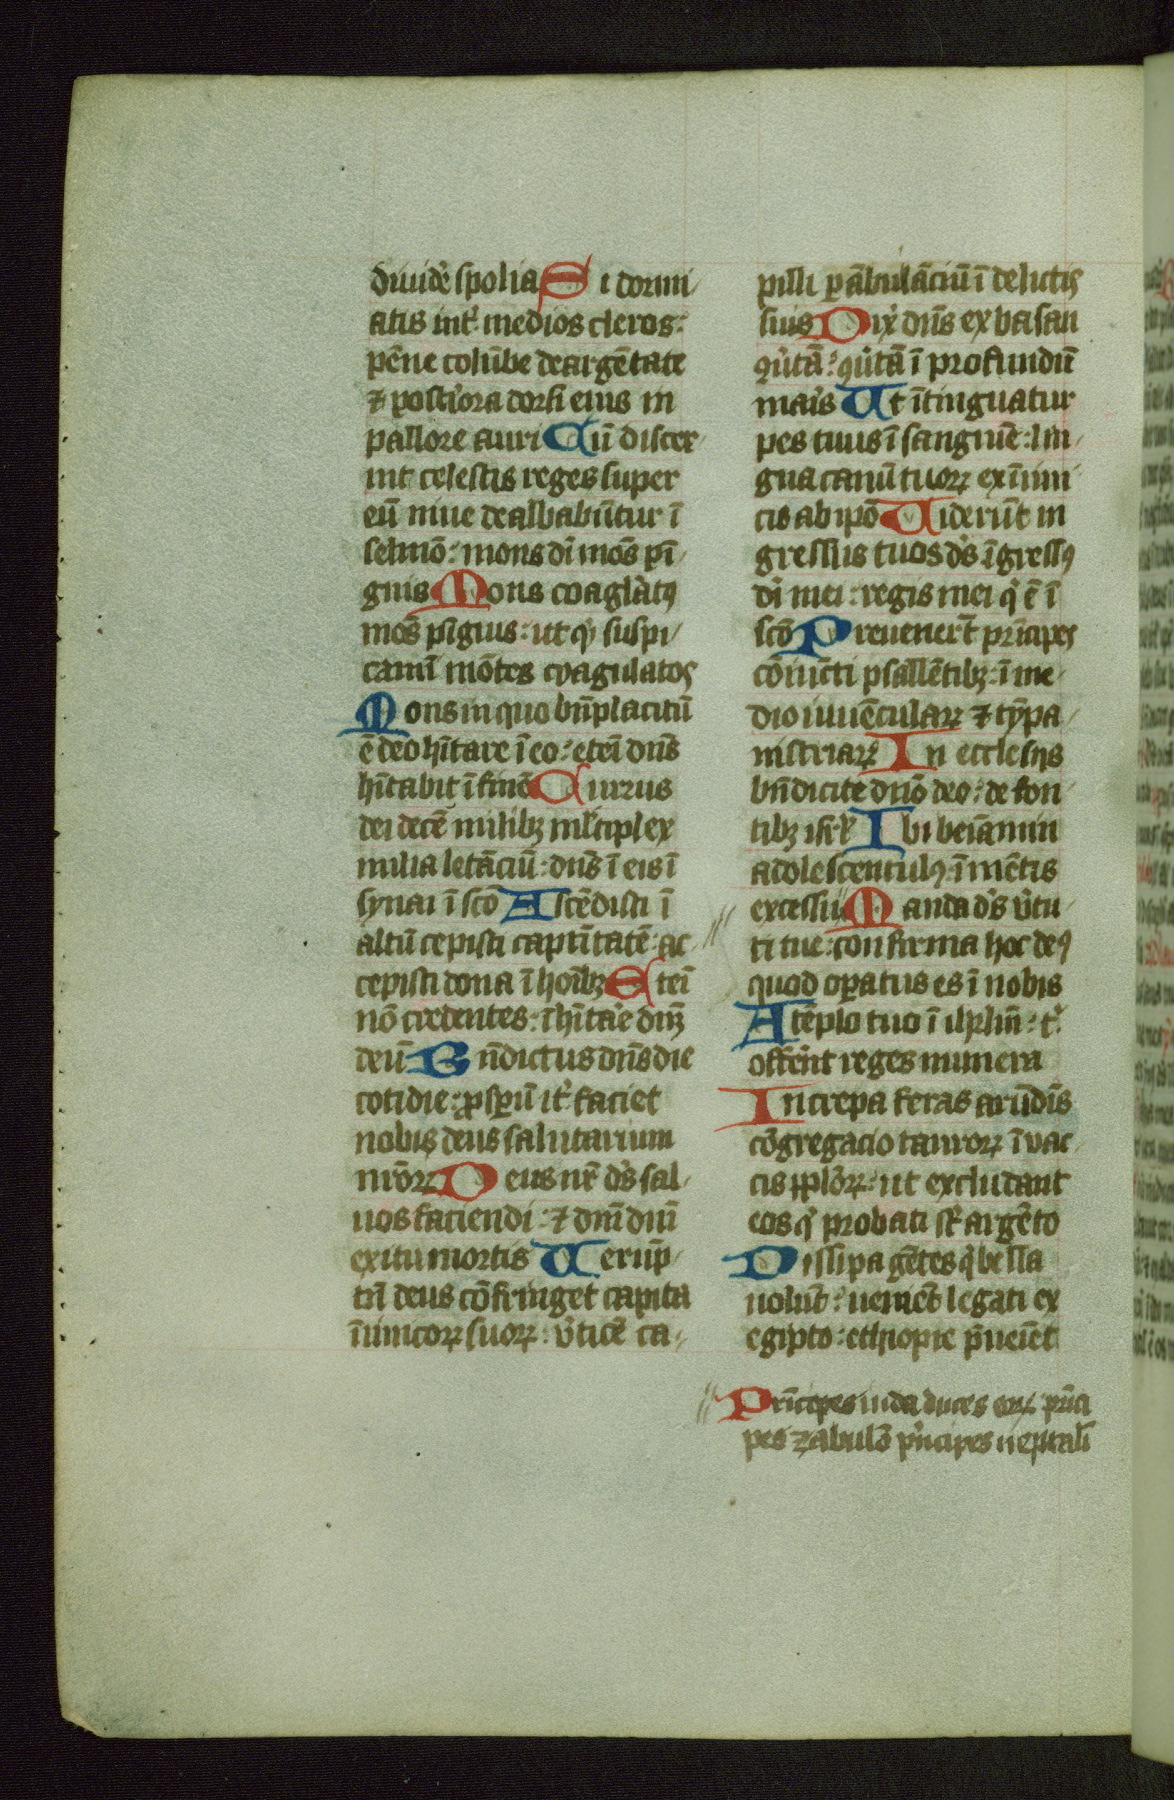 diuidẽ spolia Si dormi
atis int̾ medios cleros:
pẽne colũbe deargẽtate
⁊ post̾iora dorsi eius in
pallore auri Cũ discer
nit celestis reges super
eũ niue dealbabũtur ĩ
selmõ: mons dĩ mõs pĩ
guis Mons coaglatꝰ
mõs pĩguis: ut qͥ suspi
camĩ mõtes coagulatos
Mons in quo bñplacitũ
ẽ deo hĩtare ĩ eo: eteĩ dñs
hĩtabit ĩ finẽ Currus
dei decẽ milibꝫ ml̃tiplex
milia letãciũ: dñs ĩ eis ĩ
synai ĩ scõ Ascẽdisti ĩ
altũ cepisti captĩtatẽ: ac
cepisti dona ĩ hoĩbꝫ Eteĩ
nõ credentes: ĩhĩtar̾e dñꝫ
deũ Bñdictus dñs die
cotidie: ꝓspũ it̾ faciet
nobis deus salutarium
nr̃oꝝ Deus nr̃ dˢs sal
uos faciendi: ⁊ dñi dñi
exitu mortis Uerũp
tñ deus cõfringet capita
ĩimicoꝝ suoꝝ: v̾ticẽ ca
pilli ꝑãbulãciũ ĩ delictis
suis Dix̾ dñs ex basan
ꝯũtã: ꝯũtã ĩ profundũ
mar̾is Ut ĩtinguatur
pes tuus ĩ sanguinẽ: lin
gua canũ tuoꝝ ex ĩimi
cis ab ip̃o Uiderũt in
gressus tuos dˢs ĩgressꝰ
dĩ mei: regis mei qͥ ẽ ĩ
scõ Preuener̃t pr̃icipes
cõiũcti psallẽtibꝫ: ĩ me
dio iuuẽculaꝝ ⁊ tỹpa
nistriaꝝ In ecclesijs
bñdicite dño deo: de fon
tibꝫ isr̃l Ibi beiãmin
adolescentulꝰ: ĩ mẽtis
excessu Manda dˢs v̾tu
ti tue: confirma hoc deꝰ
quod oꝑatus es ĩ nobis
A tẽplo tuo ĩ ihrl̃m: t̾
offer̃nt reges munera
Increpa feras arũdĩs
cõgregacio tauroꝝ ĩ vac
cis ppl̃oꝝ: ut excludant
eos qͥ probati st̃ argẽto
Dissipa gẽtes q̾ bella
uolũt: ueniẽt legati ex
egipto: ethiopie p̃ueiẽt
Pr̃icipes iuda duces eoꝝ prĩci
pes zabulõ pͥncipes neptali